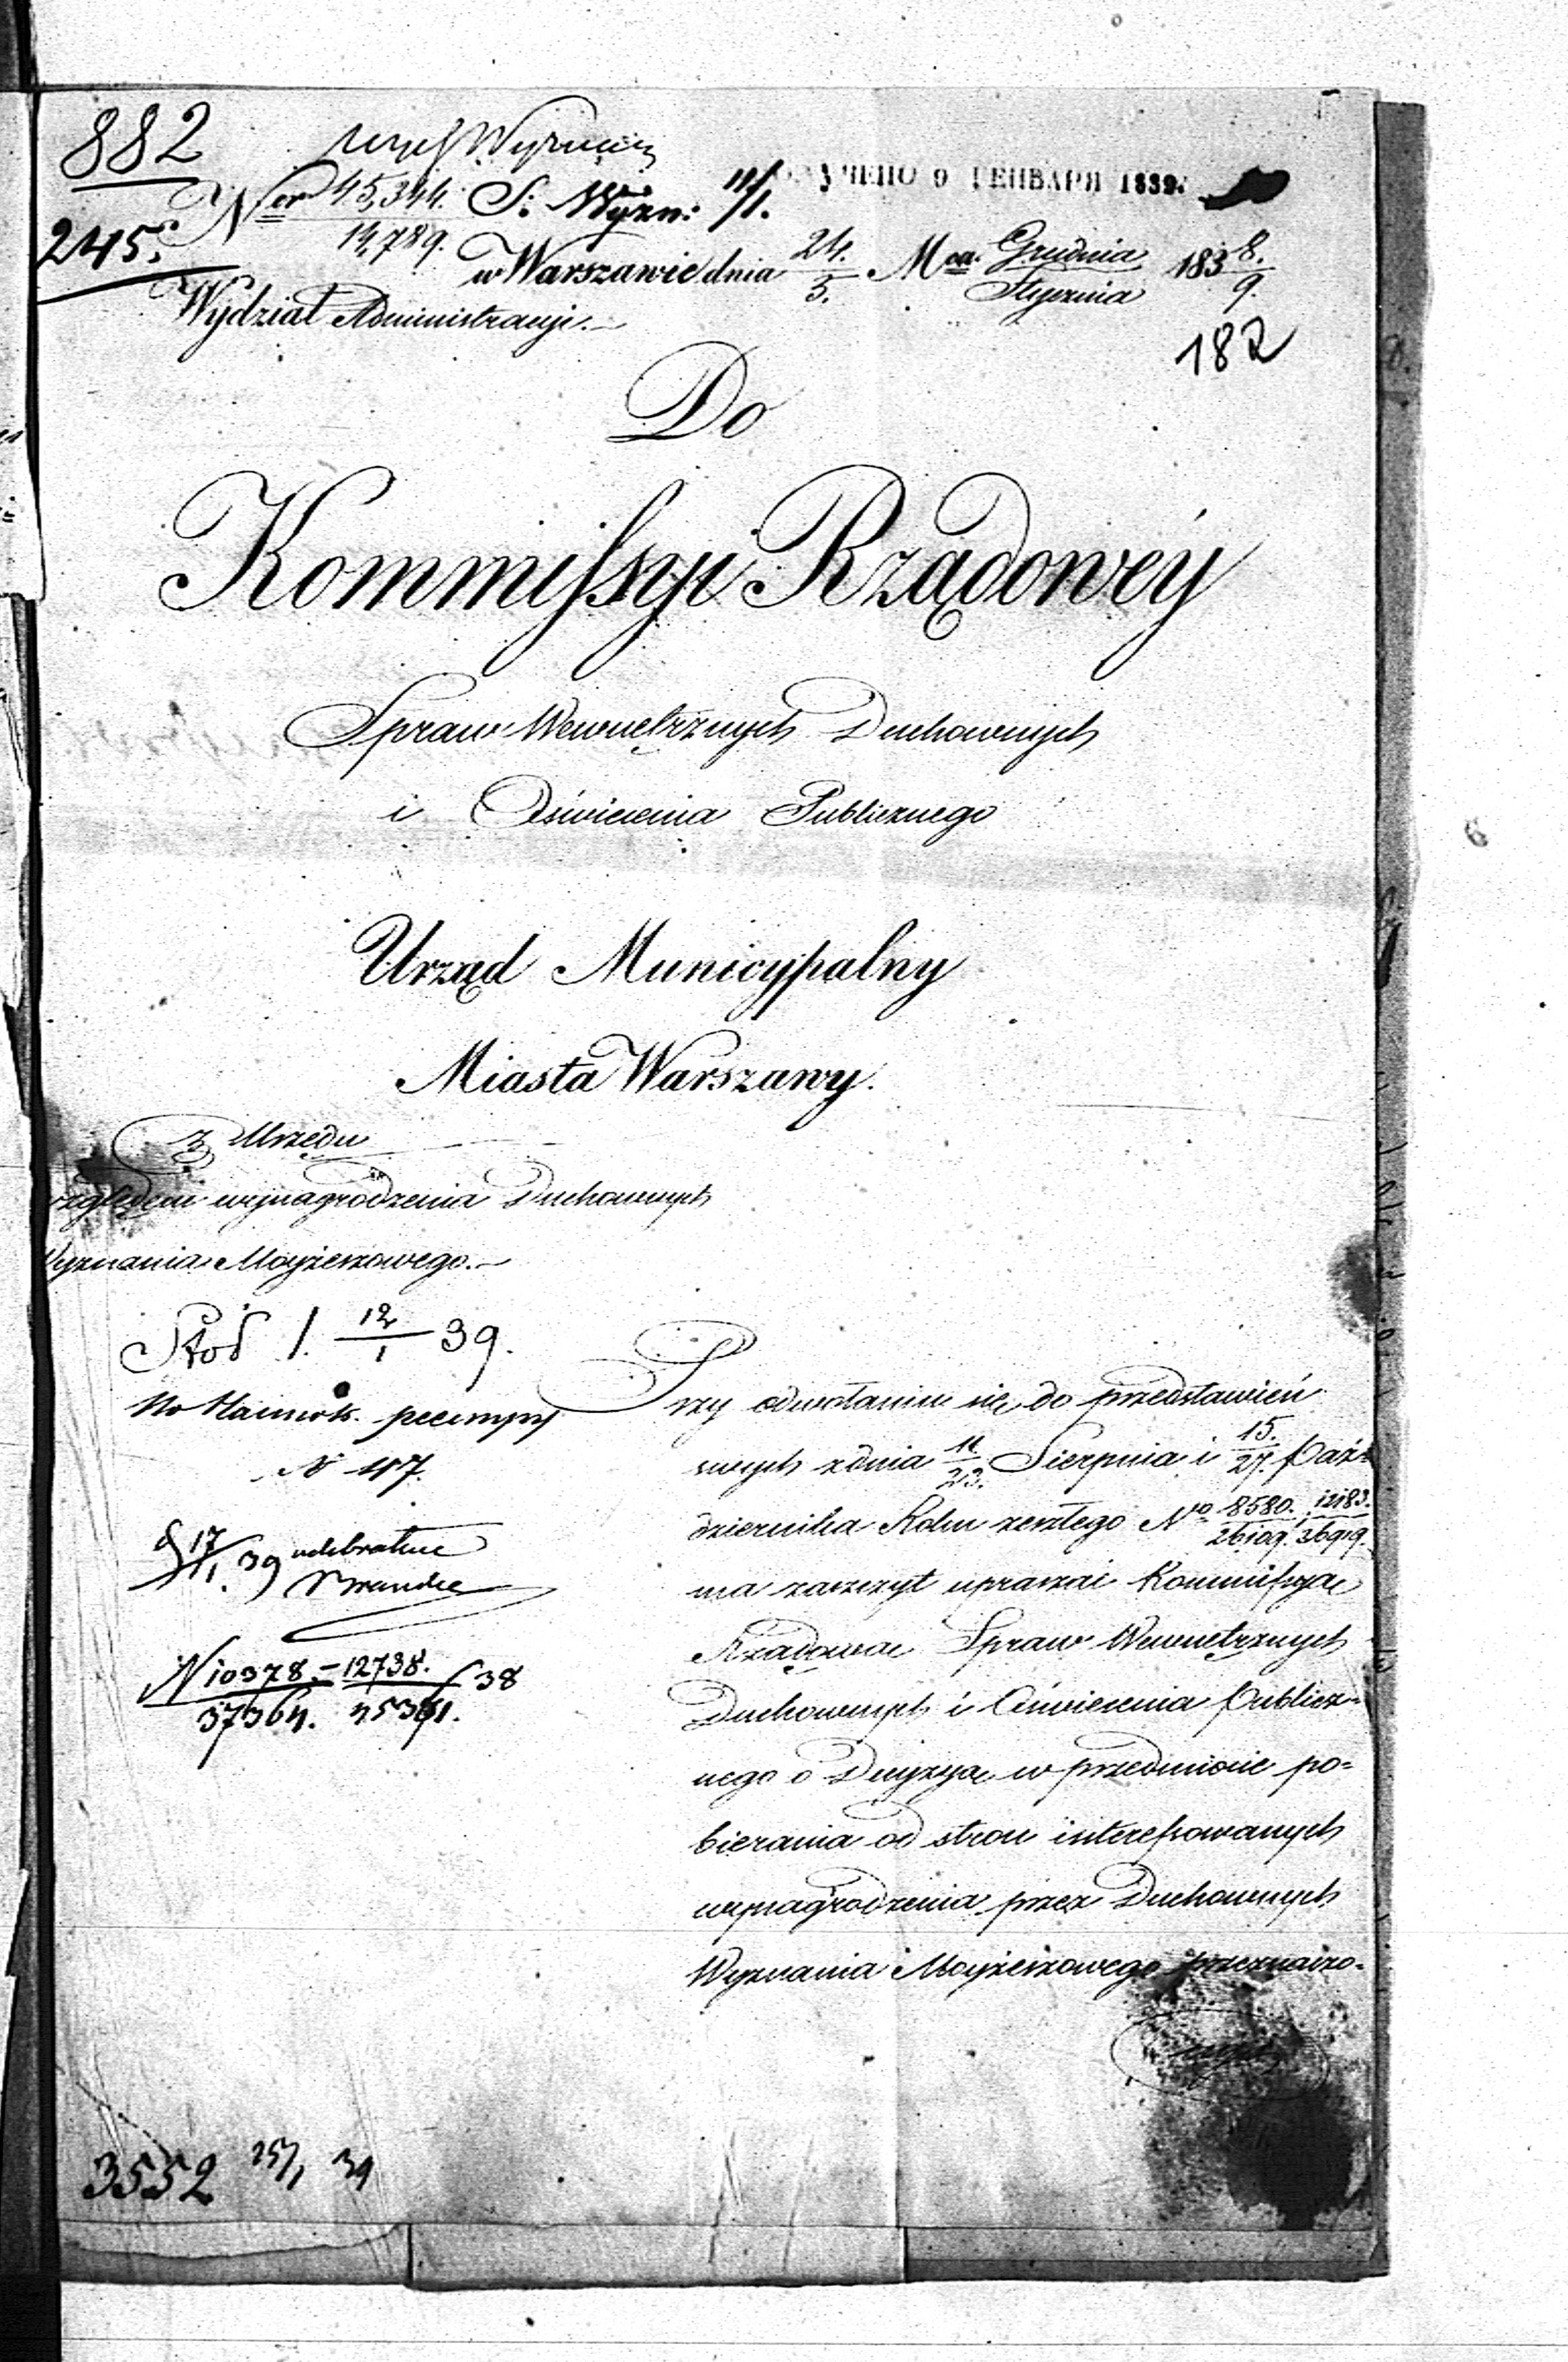 882
Ner 45,344. S: Wyzn: 11/1. ПОЛУЧЕНО 9 ГЕНВАРЯ 1839.
245. 14,789.
w Warszawie dnia 24./5. Mca Grudnia/Stycznia 183 8./9.
Wydział Administracji.
182
Do
Kommissyi Rządowéy
Spraw Wewnętrznych Duchownych
i Oświecenia Publicznego
Urząd Municypalny
Miasta Warszawy.
Z Urzędu
względem wynagrodzenia Duchownych
Wyznania Moyżeszowego.
1. 12/1 39.
N 117.
17/1. 39
N 10378. – 12738. / 38
37364. 45361.
Przy odwołaniu się do przedstawień
swych z dnia 11./23. Sierpnia i 15./27. Paź-
dziernika Roku zeszłego No 8580./26109. 12183./36919.
ma zaszczyt upraszać Kommissyą
Rządową Spraw Wewnętrznych
Duchownych i Oświecenia Publicz-
nego o Decyzyą w przedmiocie po-
bierania od stron interessowanych
wynagrodzenia przez Duchownych
Wyznania Moyżeszowego przeznaczo-
3552 25/1 39